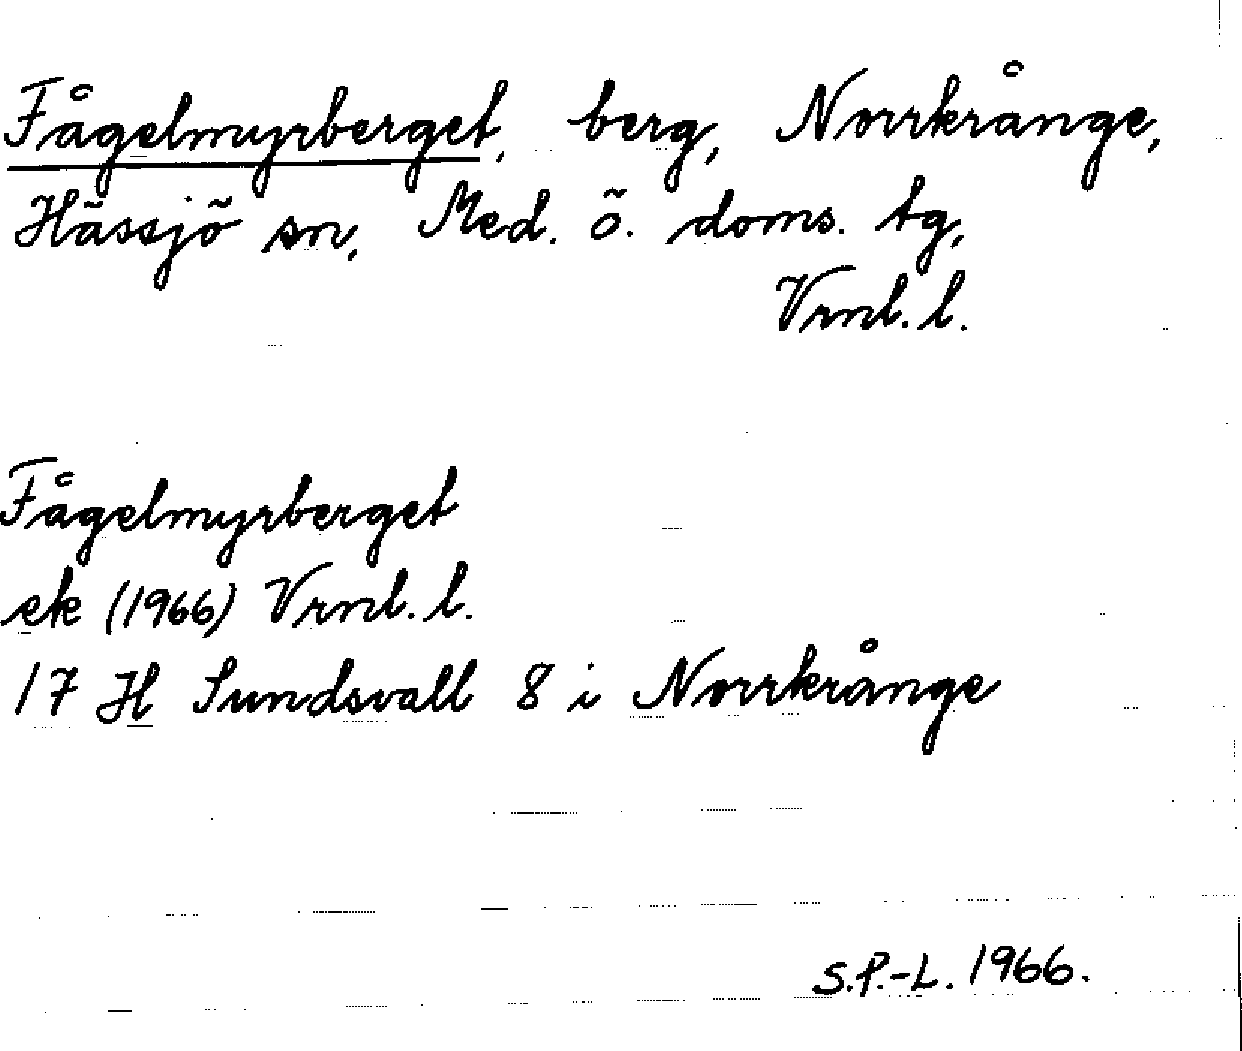 Fågelmyrberget, berg, Norrkrånge,
Hässjö sn, Med. ö. doms. tg,
Vrnl. l.
Fågelmyrberget
ek (1966) Vrnl. l.
17 H Sundsvall 8 i Norrkrånge
S.P.-L. 1966.